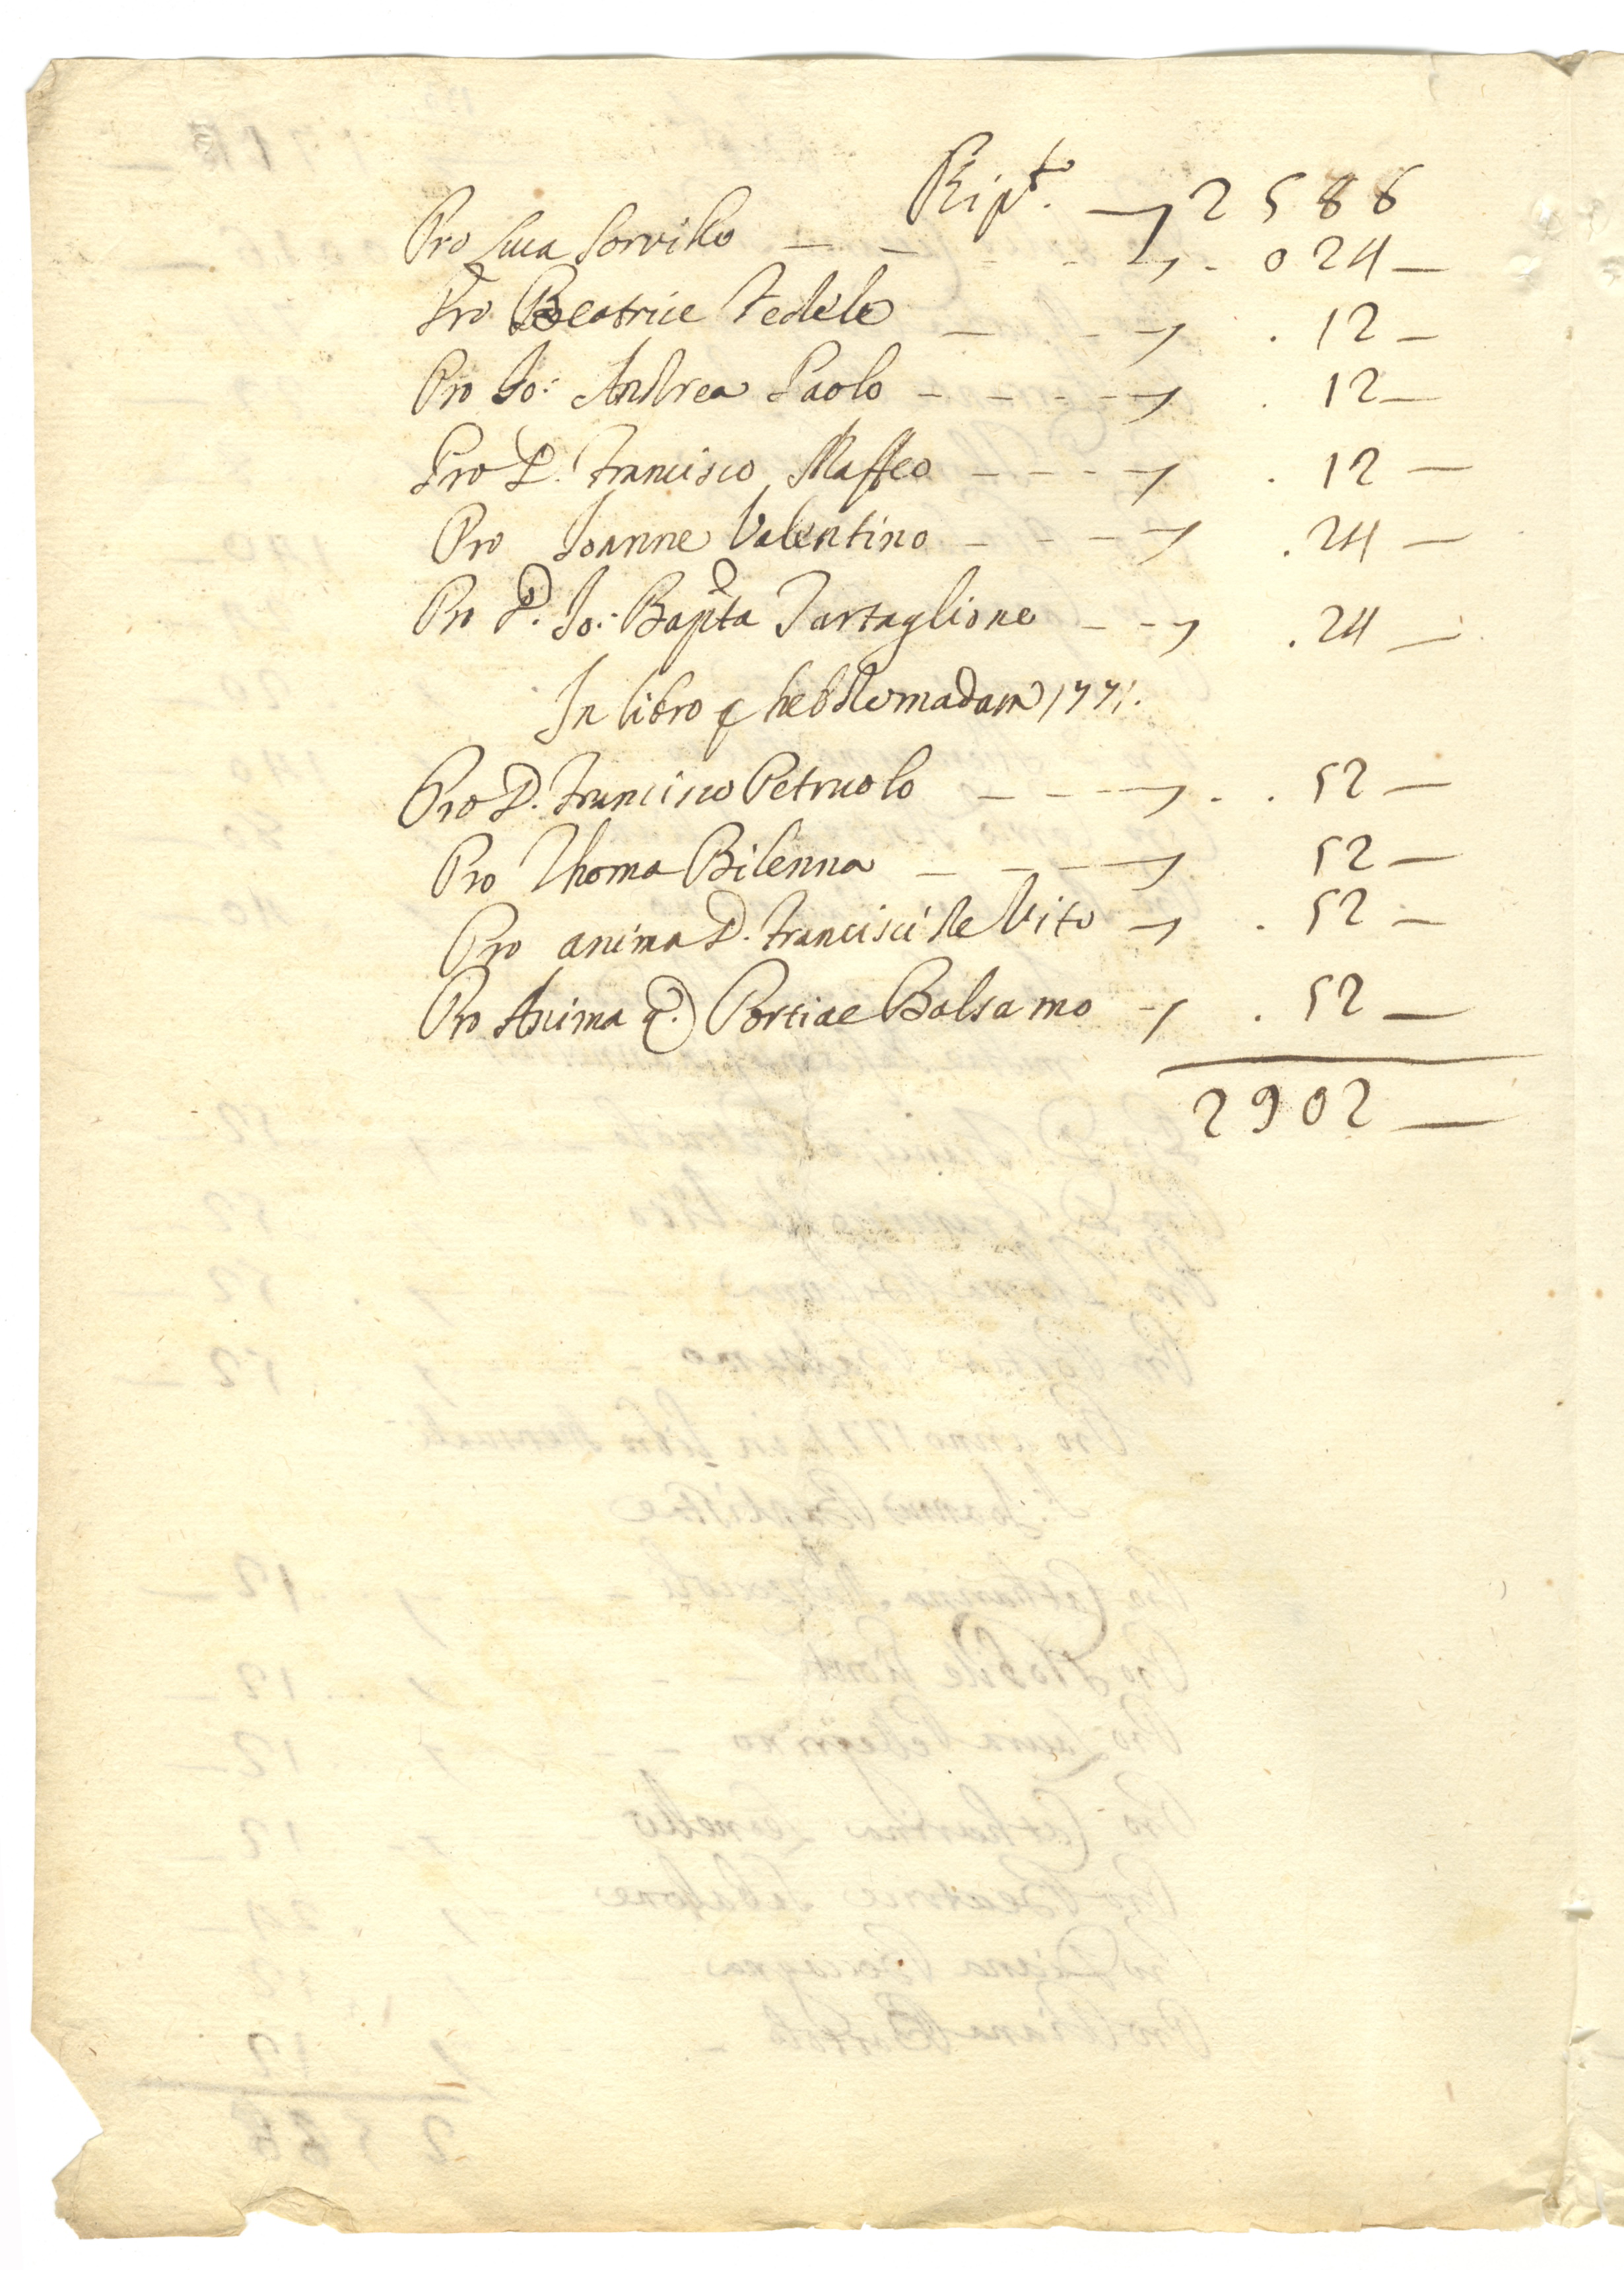 Ript.to 2586
Pro Luca Sorvillo 024
Pro Beatrice Fedele 12
Pro Jo: Andrea Paolo 12
Pro D. Francisco Maffeo 12
Pro Joanne Valentino 24
Pro D. Jo: Bapta Tartaglione 24
In libro p hebdomadam 1771.
Pro D. Francisco Petruolo 52
Pro Thoma Bilenna 52
Pro anima D. Francisci de Vito 52
Pro Anima q. Portiae Balsamo 52
2902